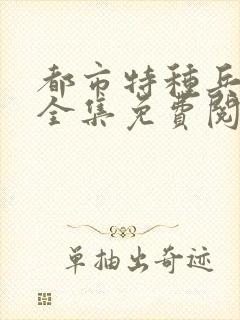 都市特种兵
全集免費閱
单抽出奇迹